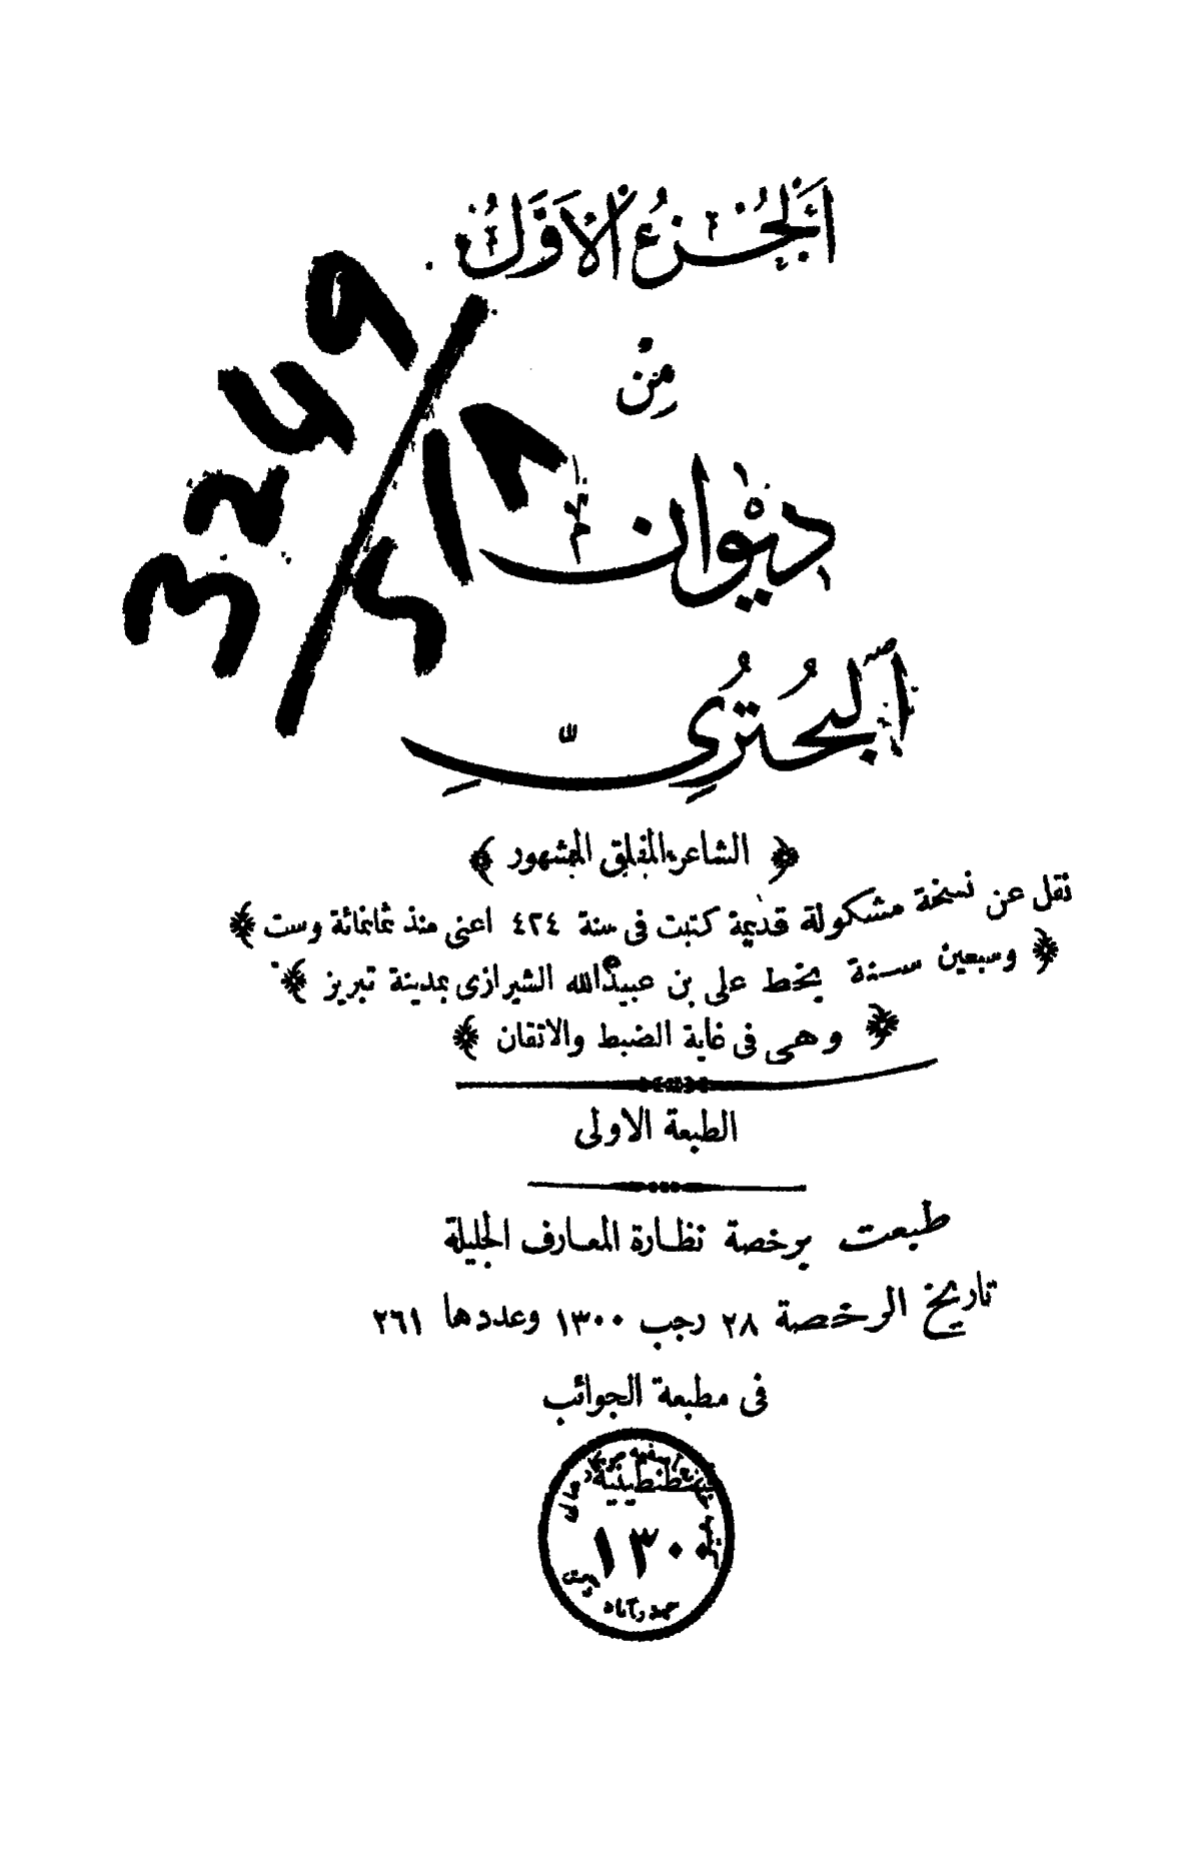 اَلْجُزْءُ الْأَوَّلُ
مِنْ
دِيْوَان
اَلْبُحْتُرِيِّ
﴿ الشاعر المفلق المشهور ﴾
نقل عن نسخة مشكولة قديمة كتبت فى سنة ٤٢٤ اعنى منذ ثمانمائة وست ﴾
﴿ وسبعين سنة بخط على بن عبيد الله الشيرازى بمدينة تبريز ﴾
﴿ وهى فى غاية الضبط والاتقان ﴾
الطبعة الاولى
طبعت برخصة نظارة المعارف الجليلة
تاريخ الرخصة ٢٨ رجب ١٣٠٠ وعددها ٢٦١
فى مطبعة الجوائب
قسطنطينية
١٣٠٠
3249